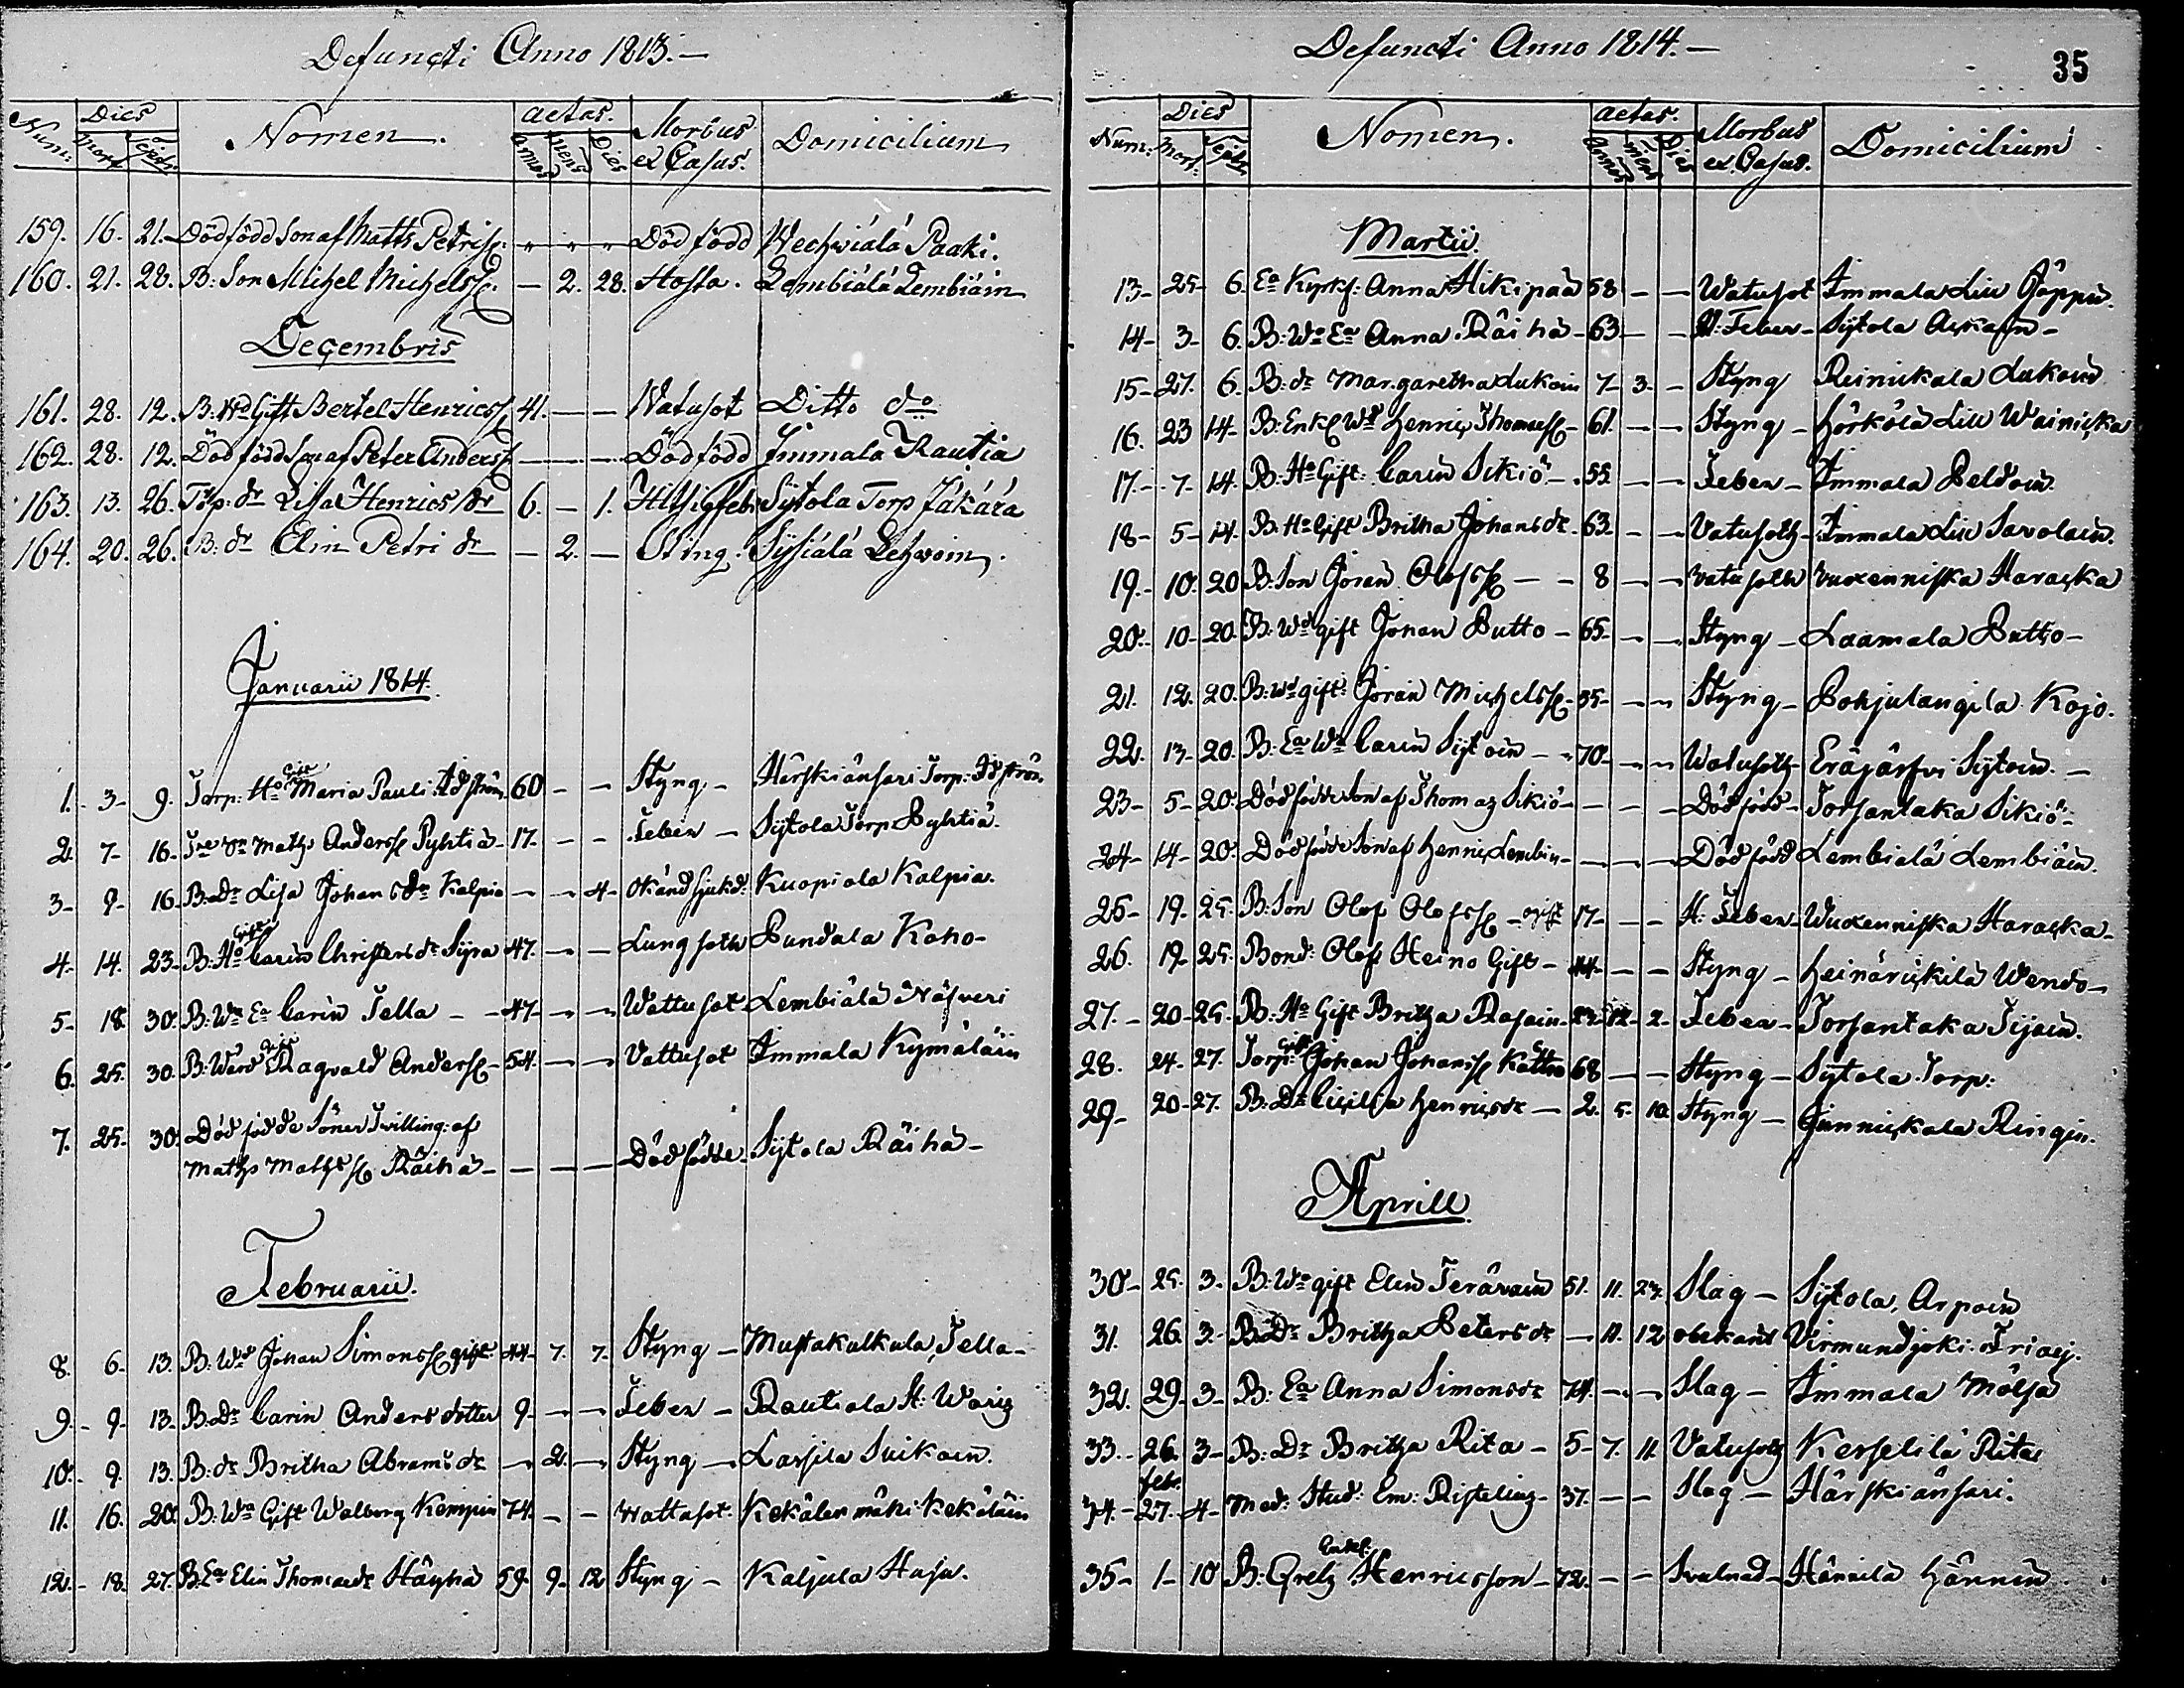 Defuncti Anno 1813.—
Num: Dies Mort. Sepult. Nomen. aetas. annos mens Dies Morbus et Casus. Domicilium
159. 16. 21. Dödfödd Son af Matts Petriss. " " " Död född Wechwiälä Paaki.
160. 21. 28. B: Son Michel Michelss. — 2. 28. Hosta. Lembiälä Lembiäin
Decembris
161. 28. 12. B. Wd Gift Bertel Henricss 41. — — Watusot Ditto do
162. 28. 12. Död född Son af Peter Anderss — — — Dödfödd Immala Rautia
163. 13. 26. Torp. dr Lisa Henrics dr 6. — 1. Hitsigfeb: Sijtola Torp
164. 20. 26. B: dr Elin Petri dr — 2. — Sting. Sysiälä Lehwoin.
Januarii 1814.
1. 3. 9. Torp: Ho Gift Maria Pauli 60 — — Styng — Härskiänsari Torp:
2. 7. 16. Maths Anderss Pyhtiä 17. — — Feber — Sijtola Torp Pyhtiä.
3. 9. 16. B: Dr Lisa Johans dr Kalpia — — 4. Okänd sjukd. Kuopiala Kalpia.
4. 14. 23. B: Ho Gift Carin Christers dr Sijra 47. — — Lungsoth Pundala Koho—
5. 18. 30. B: Wa Ea Carin Tella — 47. — — Wattusot Lembiälä Näsveri
6. 25. 30. B: Wärd Gift Ragvald Anderss 54. — — Vattusot Immala Kymäläin
7. 25. 30. Död födde Söner Twilling. af
Maths Maths ss Räihä — — — Död födde Sijtola Räihä—
Februarii.
8. 6. 13. B. Wd Johan Simonss gift 44. 7. 7. Styng — Mustakalkula, Tella—
9. 9. 13. B. Dr Carin Anders dotter 9. — — Feber — Rautiala H: Warig
10. 9. 13. B: dr Britha Abrams dr — 2. — Styng — Larsila Suikain.
11. 16. 20. B: Wa Gift Walborg Kempin 74. — — Wattusot. Kekälenmäki Kekäläin
12. 18. 27. B. Ea Elin Thomasdr Häyhä 59. 9. 12 Styng — Kaljula Haju.
Defuncti Anno 1814.—
35
Num: Dies Mort: Sepult Nomen. aetas. annos mens Dies Morbus et Casus. Domicilium
Martii.
13. 25. 6. Ea Kyrkf. Anna Hikipää 58 — — Watusot Immala Liu Jäppin.
14. 3. 6. B: Wa Ea Anna Räihä — 63. — — H. Feber — Sijtola
15. 27. 6. B: dr Margaretha Lukain 7. 3. — Styng Reinickala Lukain
16. 23 14. B: Enkl Wd Henric Thomass 61. — — Styng — Hörkölä Liu Wainicka
17. 7. 14. B. Ho Gift: Carin Sikiö — 55. — — Feber — Immala Beldoin.
18. 5. 14. B. Ho Gift Britha Johans dr. 63. — — Vatusoth Immala Liu Savolain.
19. 10. 20. B: Son Jöran Olofss — 8 — — Vatusoth Vuoxenniska Haracka
20. 10. 20. B. Wd gift Johan Putto — 65. — — Styng — Laamala Putto—
21. 12. 20. B: Wd gift: Jöran Michelss 35. — — Styng — Pohjalangila Kojo.
22. 13. 20. B: Ea Wa Carin Sijtoin — 70. — — Watusoth Eräjärfvi Sijtoin.—
23. 5. 20. Död födde Son af Thomas Sikiö — — — Död född — Torsantaka Sikiö—
24. 14. 20. Död födde Son af Henric Lembin — — — Död född Lembiälä Lembiäin.
25. 19. 25. B: Son Olof Olofss gift 17. — — H: Feber Wuxenniska Haracka—
26. 19. 25. Bond: Olof Heino Gift — 44. — — Styng — Heinärickilä Wendo—
27. 20. 25. B: Ho Gift Britha Rasain 23. 12. 2. Feber — Torsantaka Tijain.
28. 24. 27. Torp: Gift Johan Johanss 68 — — Styng — Sijtola Torp:
29. 20. 27. B. Dr Cicilia Henrics dr — 2. 5. 10. Styng — Junnickala Ringin.
Aprill
30. 25. 3. B: Wa gift Elin Terävain 51. 11. 27. Slag — Sijtola, Arpoin
31. 26. 3. B: Dr Britha Peters dr — 11. 12 obekant Virmundjoki:
32. 29. 3. B: Ea Anna Simonsdr 74. — — Slag — Immala Mölsä
33. 26. 3. B: Dr Britha Rita — 5. 7. 11. Vatusoth Kerselilä Rita
34. febr. 27. 4. Med: Stud: Em: Risteling. 37. — — Slag — Härskiänsari.
35. 1. 10 B. Enkl. Grels Henricsson 72. — — Svulnad — Hännilä Hännin